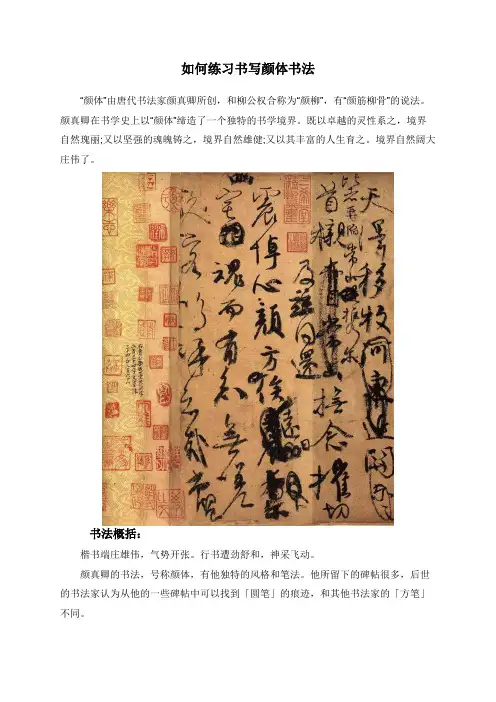 如何练习书写颜体书法
“颜体”由唐代书法家颜真卿所创，和柳公权合称为“颜柳”，有“颜筋柳骨”的说法。
颜真卿在书学史上以“颜体”缔造了一个独特的书学境界。既以卓越的灵性系之，境界
自然瑰丽;又以坚强的魂魄铸之，境界自然雄健;又以其丰富的人生育之。境界自然阔大
庄伟了。
天澤移牧河關
比者再陷常山攜尔
首櫬及茲同還撫念摧切
震悼心顏方俟遠日
宅魂而有知無嗟
久客嗚呼哀哉尚饗
书法概括：
楷书端庄雄伟，气势开张。行书遒劲舒和，神采飞动。
颜真卿的书法，号称颜体，有他独特的风格和笔法。他所留下的碑帖很多，后世
的书法家认为从他的一些碑帖中可以找到「圆笔」的痕迹，和其他书法家的「方笔」
不同。